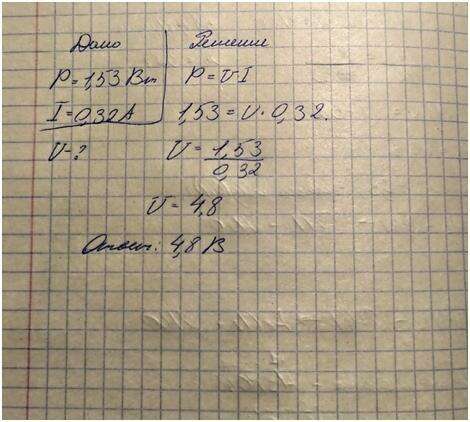 Дано
P = 1,53 Вт
I = 0,32 А
U - ?
Решение
P = U·I
1,53 = U · 0,32.
U = 1,53
0,32
U = 4,8
Ответ: 4,8 В